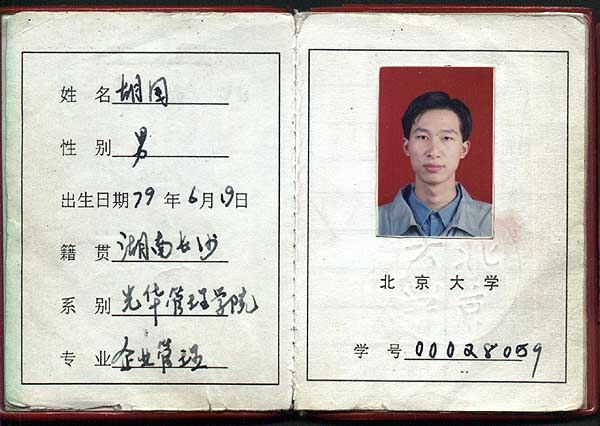 姓 名 胡国
性 别 男
出生日期 79 年 6 月 19 日
籍 贯 湖南长沙
系 别 光华管理学院
专 业 企业管理
北 京 大 学
学 号 00028059